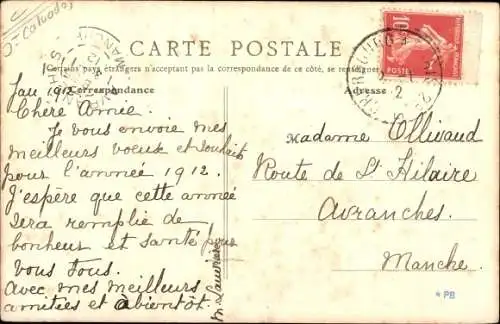 Calvados
CARTE POSTALE
Certains pays étrangers n'acceptant pas la correspondance de ce côté, se renseigner
Correspondance
Adresse
10
POSTES
MANCHE
Jan 1912
Chère Amie.
Je vous envoie mes
meilleurs voeux et souhaits
pour l'année 1912.
J'espère que cette année
sera remplie de
bonheur et santé pour
vous tous.
Avec mes meilleurs
amitiées et abientôt.
Madame Ollivaud
Route de St Hilaire
Avranches.
Manche.
PB